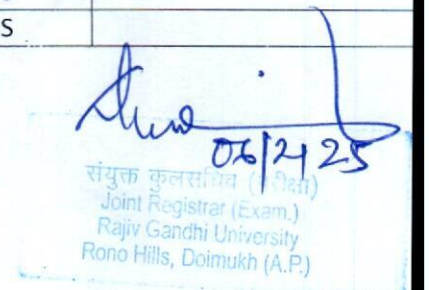 S
06/2/25
संयुक्त कुलसचिव (परीक्षा)
Joint Registrar (Exam.)
Rajiv Gandhi University
Rono Hills, Doimukh (A.P.)